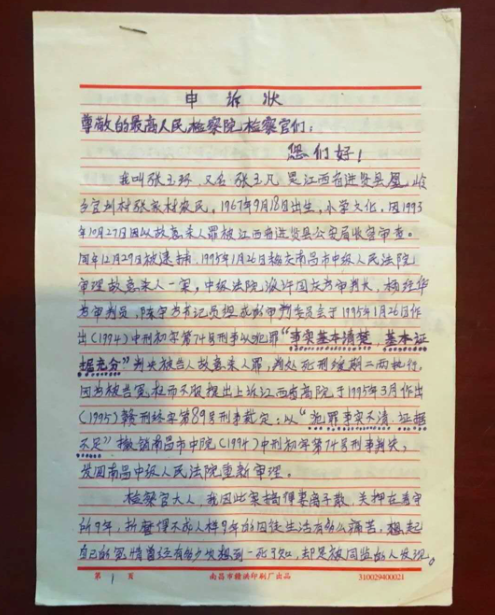 申诉状
尊敬的最高人民检察院检察官们:
您们好!
我叫张玉环,又名张玉凡 是江西省进贤县凰岭
乡官圳村张家村农民,1967年9月18日出生,小学文化,因1993
年10月27日因以故意杀人罪被江西省进贤县公安局收容审查。
同年12月29日被逮捕,1995年1月26日
审理故意杀人一案,中级法院
为审判员,书记员组成
出(1994)中刑初字第74号刑事以犯罪“事实基本清楚,基本证
据充分”判决被告人故意杀人罪,判处死刑缓期二两执行,
因为被告冤枉而不服提出上诉江西省高院于1995年3月作出
(1995)赣刑终字第89号刑事裁定:以“犯罪事实不清 证据
不足”撤销南昌市中院(1994)中刑初字第74号刑事判决,
发回南昌中级人民法院重新审理。
检察官大人,我因此案搞得妻离子散,关押在看守
所9年,折磨得不成人样9年的囚徒生活有多么痛苦,想起
自己的冤情曾经有多少次想到一死了知,却是被同监的人发现。
第 1 页
南昌市赣洪印刷厂出品
310029400021